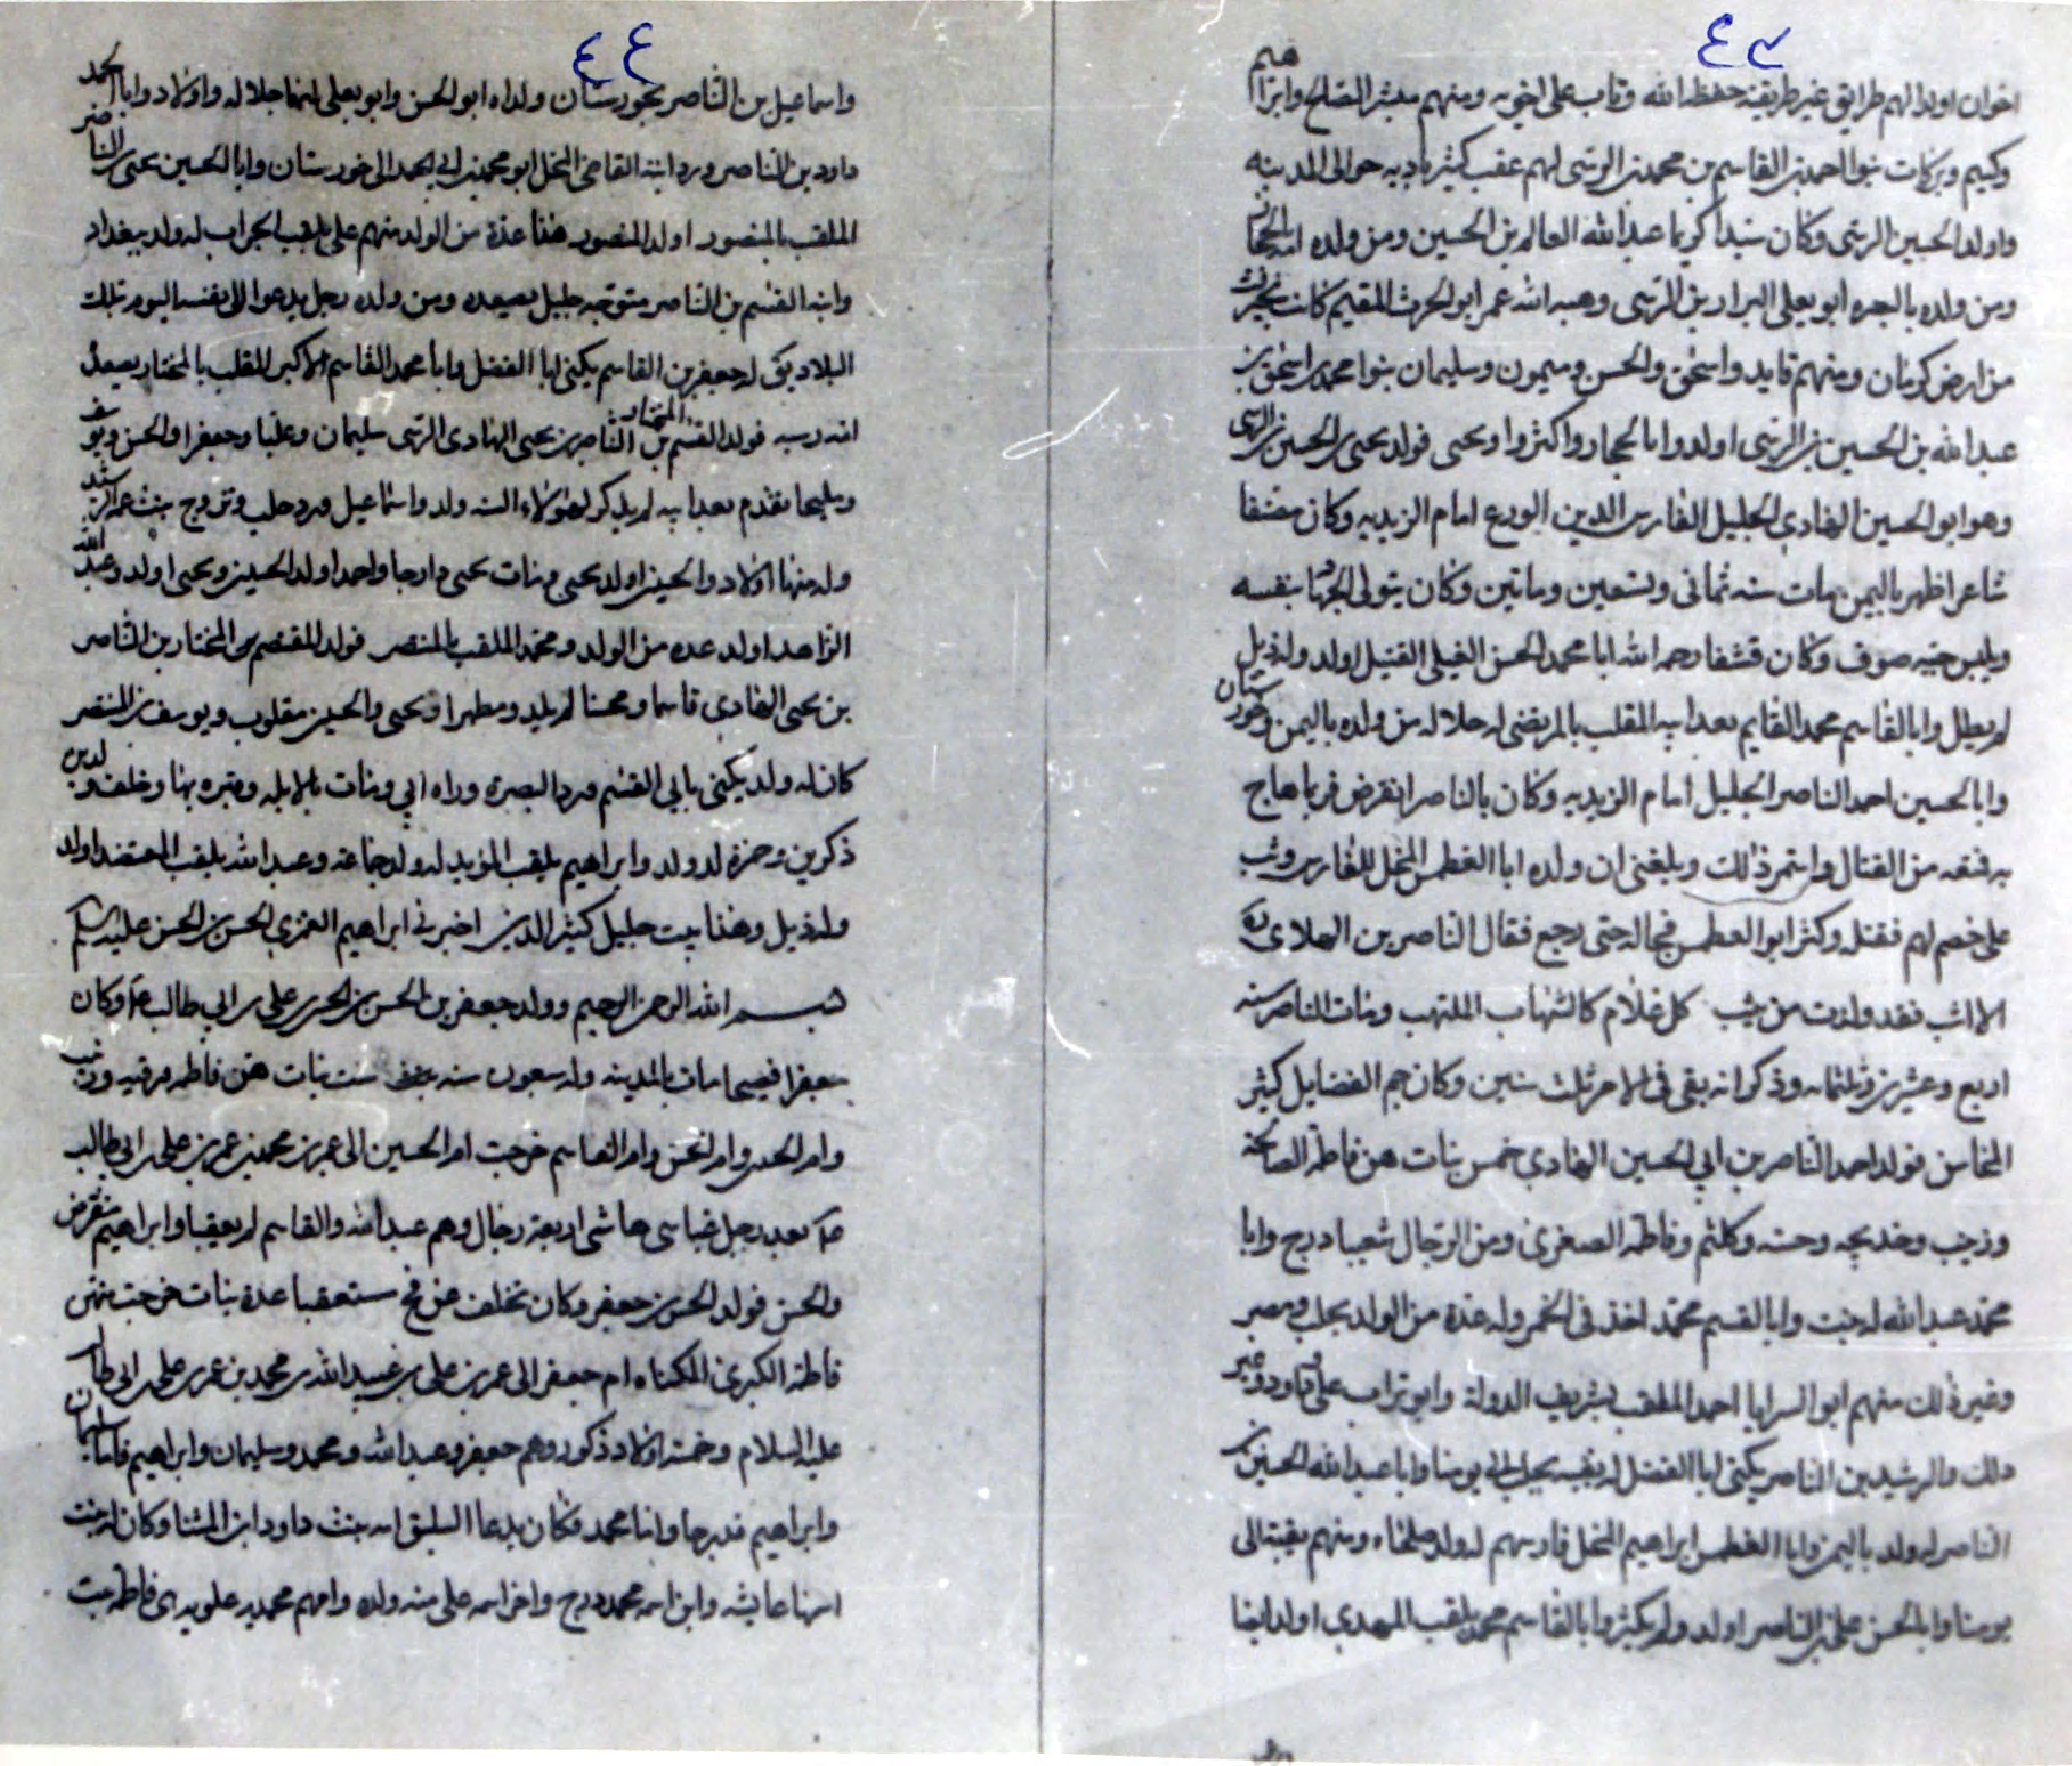 ٤٣
اخوان اولد الهم طرايق غير طريقته حفظه الله وتاب على اخويه ومنهم مبشر الصالح وابراهيم
وكيم وبركات بنو احمد بن القاسم بن محمد بن الرسى لهم عقب كثير باديه حوالى المدينه
واولد الحسين الرسى وكان سيدا كريما عبد الله العالم بن الحسين ومن ولده
ومن ولده ابو يعلى بن الرسى وهبه الله عمر ابو الحرث المقيم كان
من ارض كرمان ومنهم قايد واسحق والحسن وميمون وسليمان بنوا محمد بن اسحق بن
عبد الله بن الحسين بن الرسى اولدوا بالحجاز واكثروا ويحيى فولد يحيى بن الحسين بن الرسى
وهو ابو الحسين الهادى الجليل الفارس الدين الورع امام الزيديه وكان مصنفا
شاعرا ظهر باليمن مات سنه ثمانى وتسعين وماتين وكان يتولى الجهاد بنفسه
ويلبس جبه صوف وكان قشفا رحمه الله ابا محمد الحسن الفيلى القتيل اولد ولد ذيل
لم يطل وابا القاسم محمد القايم بعد ابيه الملقب بالمرتضى له جلاله من ولده باليمن وخورستان
وابا الحسين احمد الناصر الجليل امام الزيديه وكان بالناصر نقرس فربما هاج
به فمنعه من القتال واستمر ذلك وبلغنى ان ولده ابا الغطمس النخل الفارس وثب
على خصم لهم فقتله وكثر ابو الغطمس فجاله حتى رجع فقال الناصر بن الهادى
الا اثب فقد ولدت من يثب كل غلام كالشهاب الملتهب ومات الناصر سنه
اربع وعشرين وثلثمائه وذكر انه بقى فى الامر ثلث سنين وكان جم الفضايل كثير
المحاسن فولد احمد الناصر بن ابى الحسين الهادى خمس بنات هن فاطمه الصالحة
وزينب وخديجه وحسنه وكلثم وفاطمه الصغرى ومن الرجال شعيبا درج وابا
محمد عبد الله له بنت وابا القسم محمد اخذ فى الخمر وله عدة من الولد بحلب ومصر
وغير ذلك منهم ابو السرايا احمد الملقب بشريف الدولة وابو تراب على وداود وغير
ذلك والرشيد بن الناصر يكنى ابا الفضل له بقيه بحلب الى يومنا وابا عبد الله الحسين بن
الناصر له ولد باليمن وابا الغطمس ابراهيم النخل فارسهم له ولد صلحاء ومنهم بقيه الى
يومنا وابا الحسن على بن الناصر اولد ولم يكثر وابا القاسم محمد يلقب المهدى اولد ايضا
٤٤
واسماعيل بن الناصر بخورستان ولداه ابو الحسن وابو يعلى لهما جلاله واولاد وابا الحمد
داود بن الناصر ورد ابنه القاضى النخل ابو محمد بن ابى الحمد الى خورستان وابا الحسين يحيى بن الناصر
الملقب بالمنصور اولد المنصور هذا عدة من الولد منهم على يلقب الجراب له ولد ببغداد
وابنه القسم بن الناصر متوجه جليل بصعده ومن ولده رجل يدعوا الى نفسه اليوم بتلك
البلاد بقى له جعفر بن القاسم يكنى ابا الفضل وابا محمد القاسم الاكبر الملقب بالمختار بصعدة
فولد القسم المختار بن الناصر بن يحيى الهادى الرسى سليمان وعليا وجعفرا والحسن ويوسف
تقدم بعد ابيه لم يذكر لهولاء الستة ولد واسماعيل ورد حلب وتزوج بنت عمه الرشيد
وله منها اولاد والحسين اولد يحيى ومات يحيى دارجا واحمد اولد الحسين ويحيى اولد وعبد الله
الزاهد اولد عده من الولد ومحمد الملقب بالمنتصر فولد المنتصر بن المختار بن الناصر
بن يحيى الهادى قاسما ومحسنا لم يلد ومطهرا ويحيى والحسين مقلوب ويوسف بن المنتصر
كان له ولد يكنى بابى القسم ورد البصرة وراه ابى ومات بالابله وقبره بها وخلف ولدين
ذكرين حمزة له ولد وابراهيم يلقب المؤيد له ولد جماعه وعبد الله يلقب المعتضد اولد
ولد ذيل وهذا بيت جليل كثير الدين اخبر فى ابراهيم العمرى الحسن بن الحسن عليه السلام
بسم الله الرحمن الرحيم وولد جعفر بن الحسن بن الحسن بن على بن ابى طالب وكان
جعفرا فصيحا مات بالمدينه وله سبعون سنه ست بنات هن فاطمه ورقيه وزينب
وام الحسن وام الحسين وام القاسم خرجت ام الحسين الى عمر بن محمد بن عمر بن على بن ابى طالب
بعد رجل عباسى هاشمى اربعة رجال وهم عبد الله والقاسم لم يعقبا وابراهيم منقرض
والحسن فولد الحسن بن جعفر وكان تخلف عن فخ مستعقبا عدة بنات خرجت منهن
فاطمة الكبرى المكناه ام جعفر الى عمر بن على بن عبيد الله بن محمد بن عمر بن على بن ابى طالب
عليه السلام وخمسه اولاد ذكور وهم جعفر وعبد الله ومحمد وسليمان وابراهيم فاما سليمان
وابراهيم فدرجا واما محمد فكان يدعا السليق امه بنت داود ابن المثنا وكان له بنت
اسمها عايشه وابن اسمه محمد درج واخر اسمه على منه ولده وامهم محمديه علويه هى فاطمه بنت